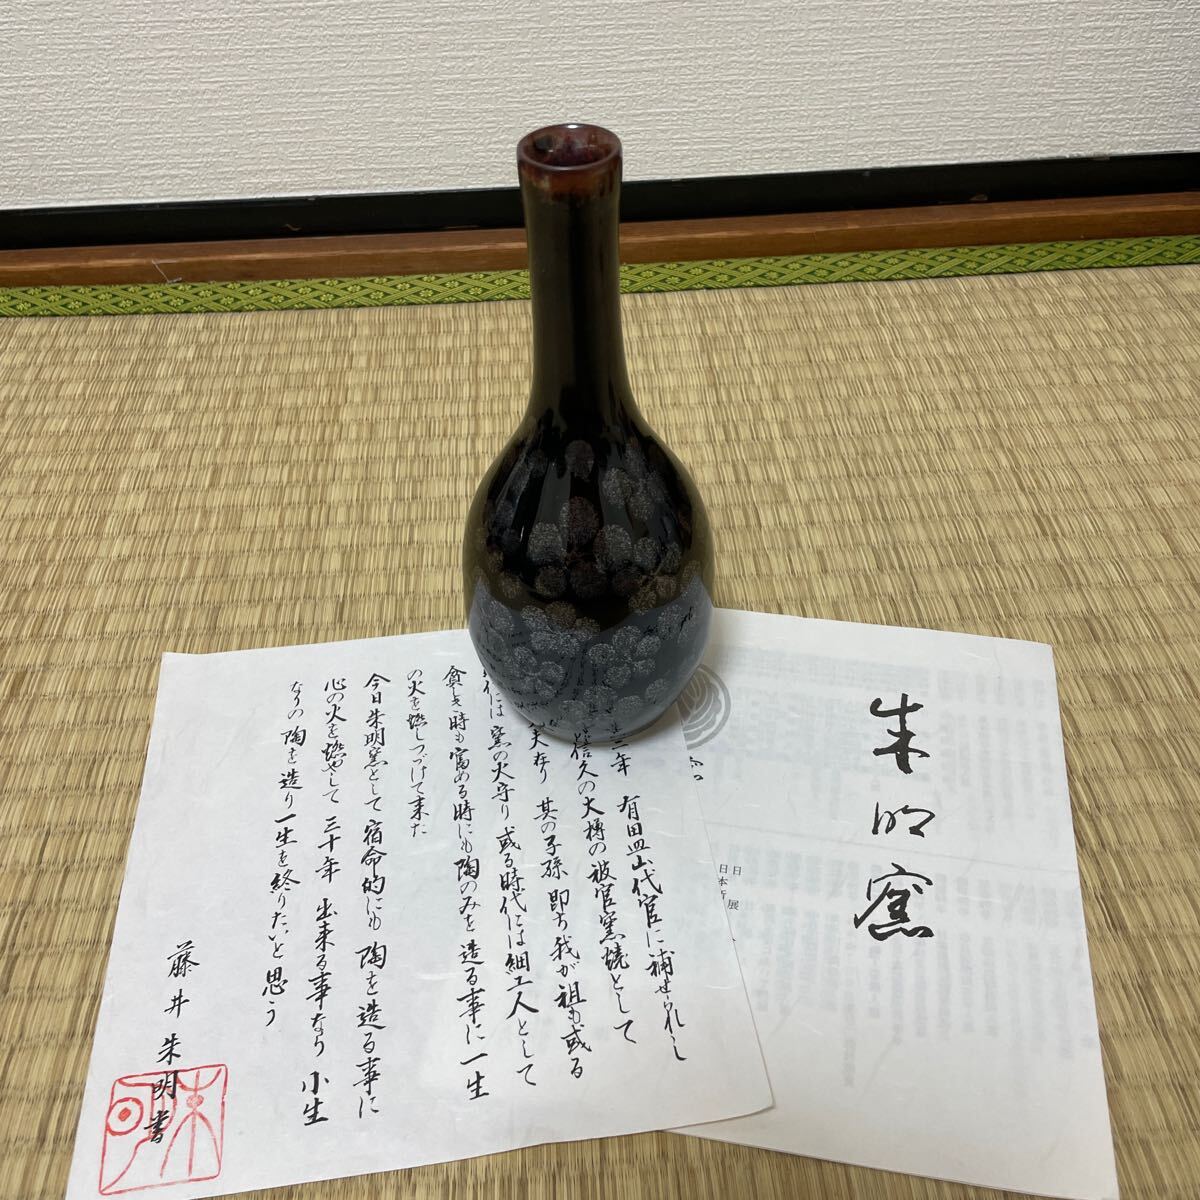 朱明窯
日展
日本新
二年 有田皿山代官に補せられし
信久の大樽の被官窯焼として
夫有り 其の子孫 即ち我が祖も或る
代には窯の火守り或る時代には細工人として
貧しき時も富める時にも陶のみを造る事に一生
の火を燃しつづけて来た
今日朱明窯として宿命的にも陶を造る事に
心の火を燃やして三十年 出来る事なり小生
なりの陶を造り一生を終りたいと思う
藤井朱明書
朱明